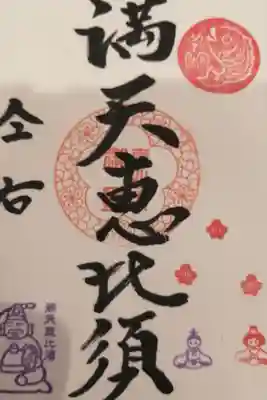 満天恵比須
仝右
満天恵比須